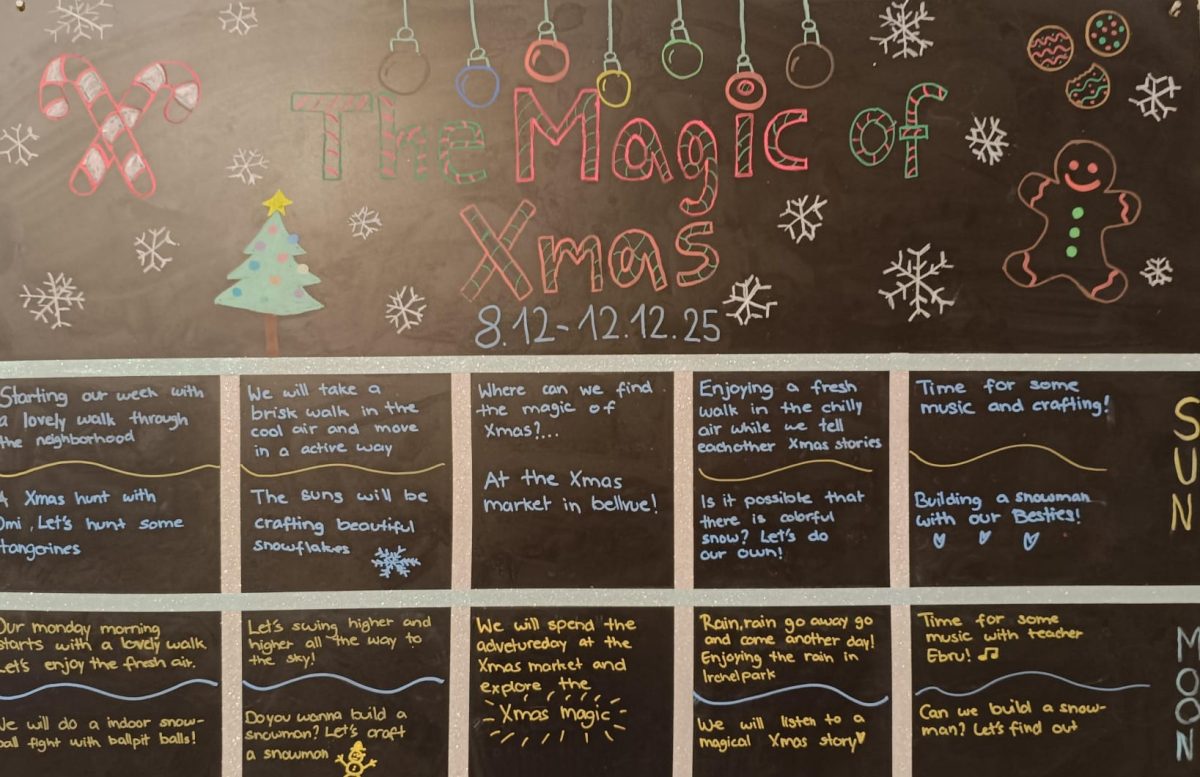 The Magic of
Xmas
8.12-12.12.25
Starting our week with
a lovely walk through
the neighborhood
A Xmas hunt with
Omi, Let's hunt some
tangerines
We will take a
brisk walk in the
cool air and move
in a active way
The suns will be
crafting beautiful
snowflakes
Where can we find
the magic of
Xmas?...
At the Xmas
market in bellvue!
Enjoying a fresh
walk in the chilly
air while we tell
eachother Xmas stories
Is it possible that
there is colorful
snow? Let's do
our own!
Time for some
music and crafting!
Building a snowman
with our Besties!
SUN
Our monday morning
starts with a lovely walk
Let's enjoy the fresh air.
We will do a indoor snow-
ball fight with ballpit balls!
Let's swing higher and
higher all the way to
the sky!
Do you wanna build a
snowman? Let's craft
a snowman
We will spend the
advetureday at the
Xmas market and
explore the
Xmas magic
Rain, rain go away go
and come another day!
Enjoying the rain in
Irchelpark
We will listen to a
magical Xmas story
Time for some
music with teacher
Ebru!
Can we build a snow-
man? Let's find out
MOON